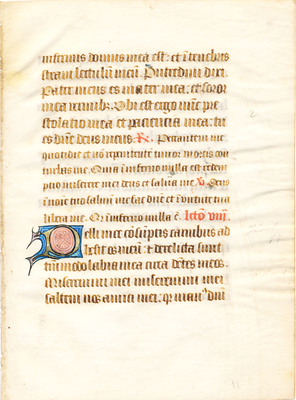 infernus domus mea est: et i tenebris
straui lectulum meu. Putredini dixi
Pater meus es mater mea: et soror
mea vermib. Ubi est ergo nuc pre
stolatio mea et paciencia mea: tu
es dne deus meus. R. Peccantem me
quotidie et no repenitente timor mortis con
turbat me. Quia i inferno nulla est redem
ptio miserere mei deus et salua me. V. Deus
i noie tuo saluu me fac dne et i uirtute tua
libera me. Qr i inferno nulla e. Lcto viii.
Pelli mee cosuptis carnibus ad
hesit os meu: et derelicta sunt
tmodo labia mea circa detes meos.
Miseremini mei miseremini mei
saltem uos amici mei: qr manu dni